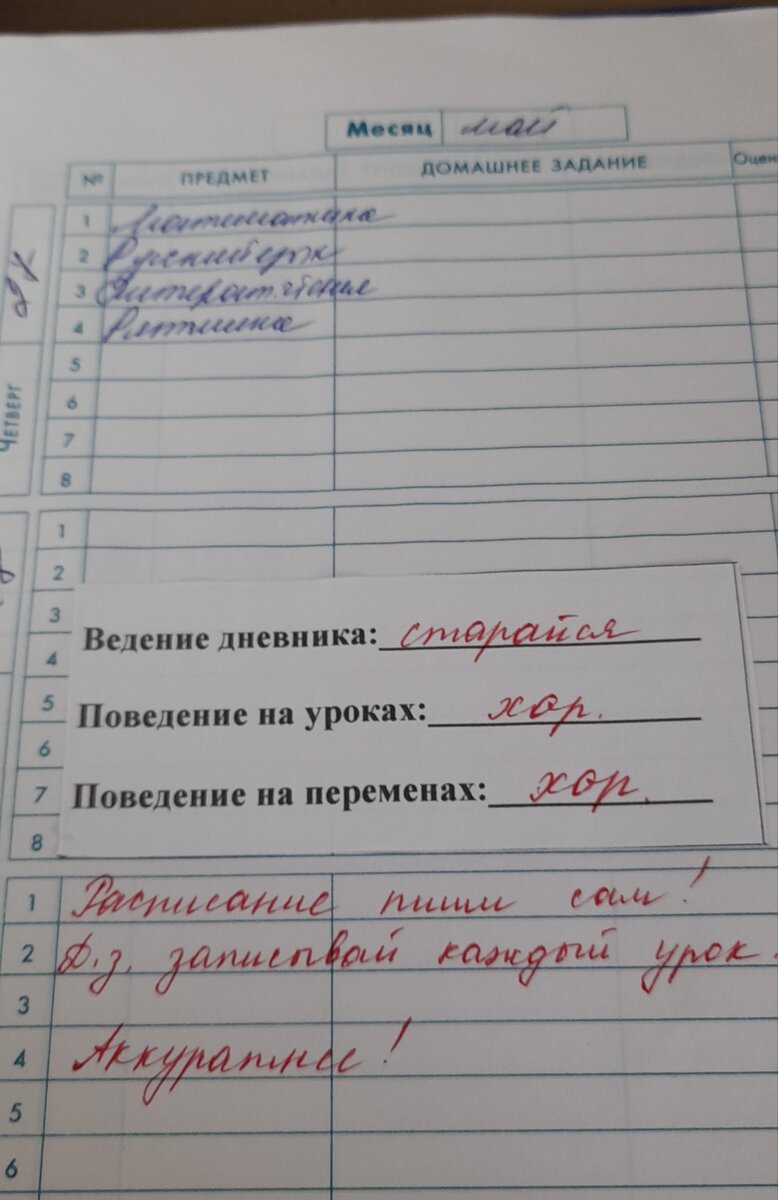 Месяц май
№ ПРЕДМЕТ ДОМАШНЕЕ ЗАДАНИЕ Оцен
1 Математика
2 Русский язык
3 Литерат. чтение
4 Ритмика
5
6
7
8
ЧЕТВЕРГ
1
2
3
4
5
6
7
8
Ведение дневника: старайся
Поведение на уроках: хор.
Поведение на переменах: хор.
1 Расписание пиши сам!
2 Д.з. записывай каждый урок.
3
4 Аккуратнее!
5
6